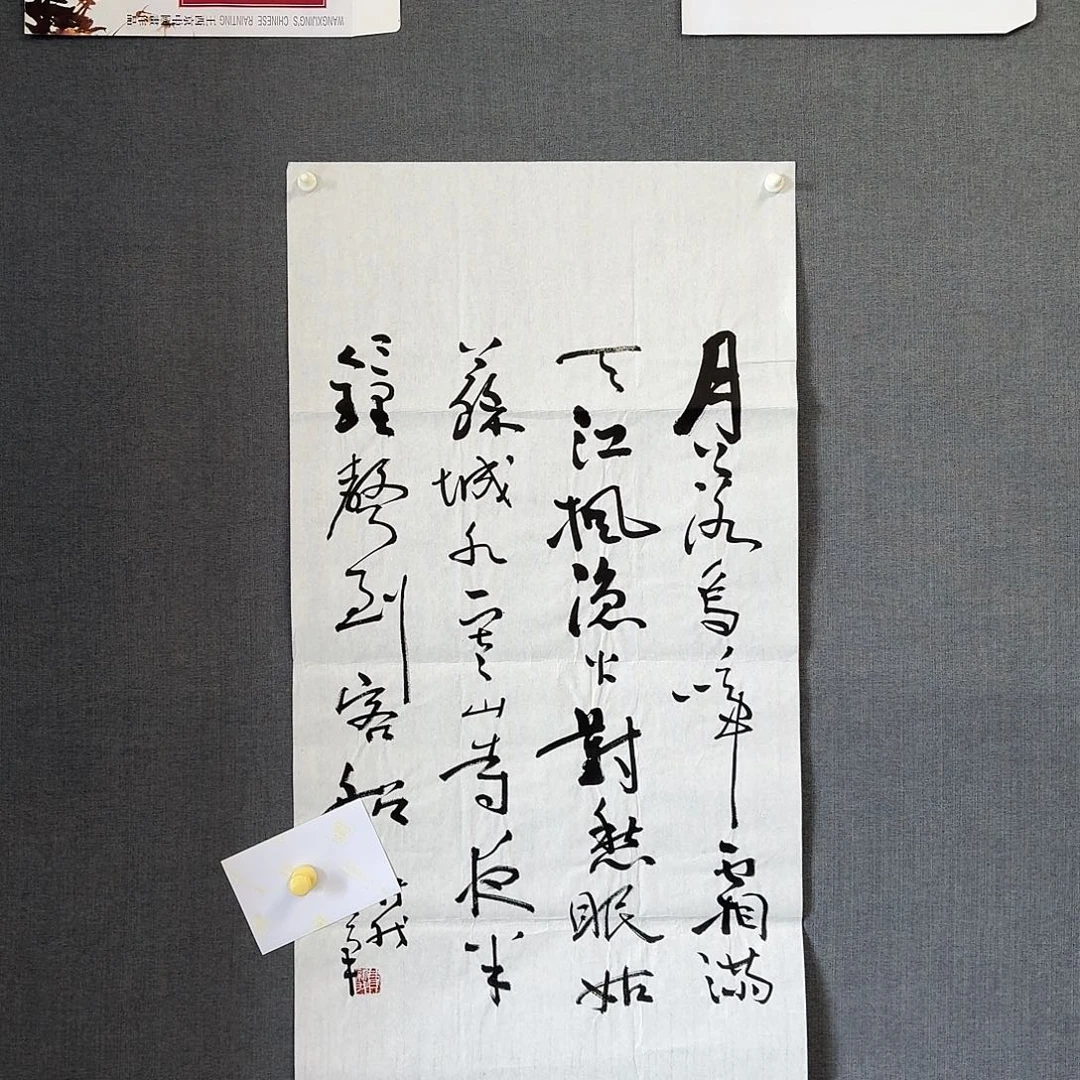 月落烏啼霜滿
天江楓漁火對愁眠姑
蘇城外寒山寺夜半
鐘聲到客船
WANGXIJING'S CHINESE PAINTING 王西京中國畫作品